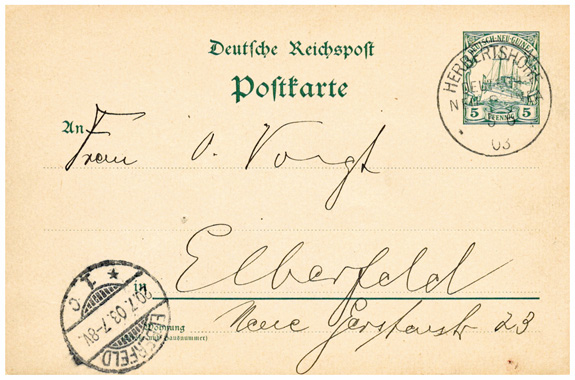 Deutsche Reichspost
Postkarte
DEUTSCH-NEU-GUINEA
5 PFENNIG 5
HERBERTSHÖHE
03
An
Frau O. Voigt
in Elberfeld
Wohnung
(Straße und Hausnummer)
Neue Gerstenstr 23
ELBERFELD
20.7.03.7-8V.
* 1 c